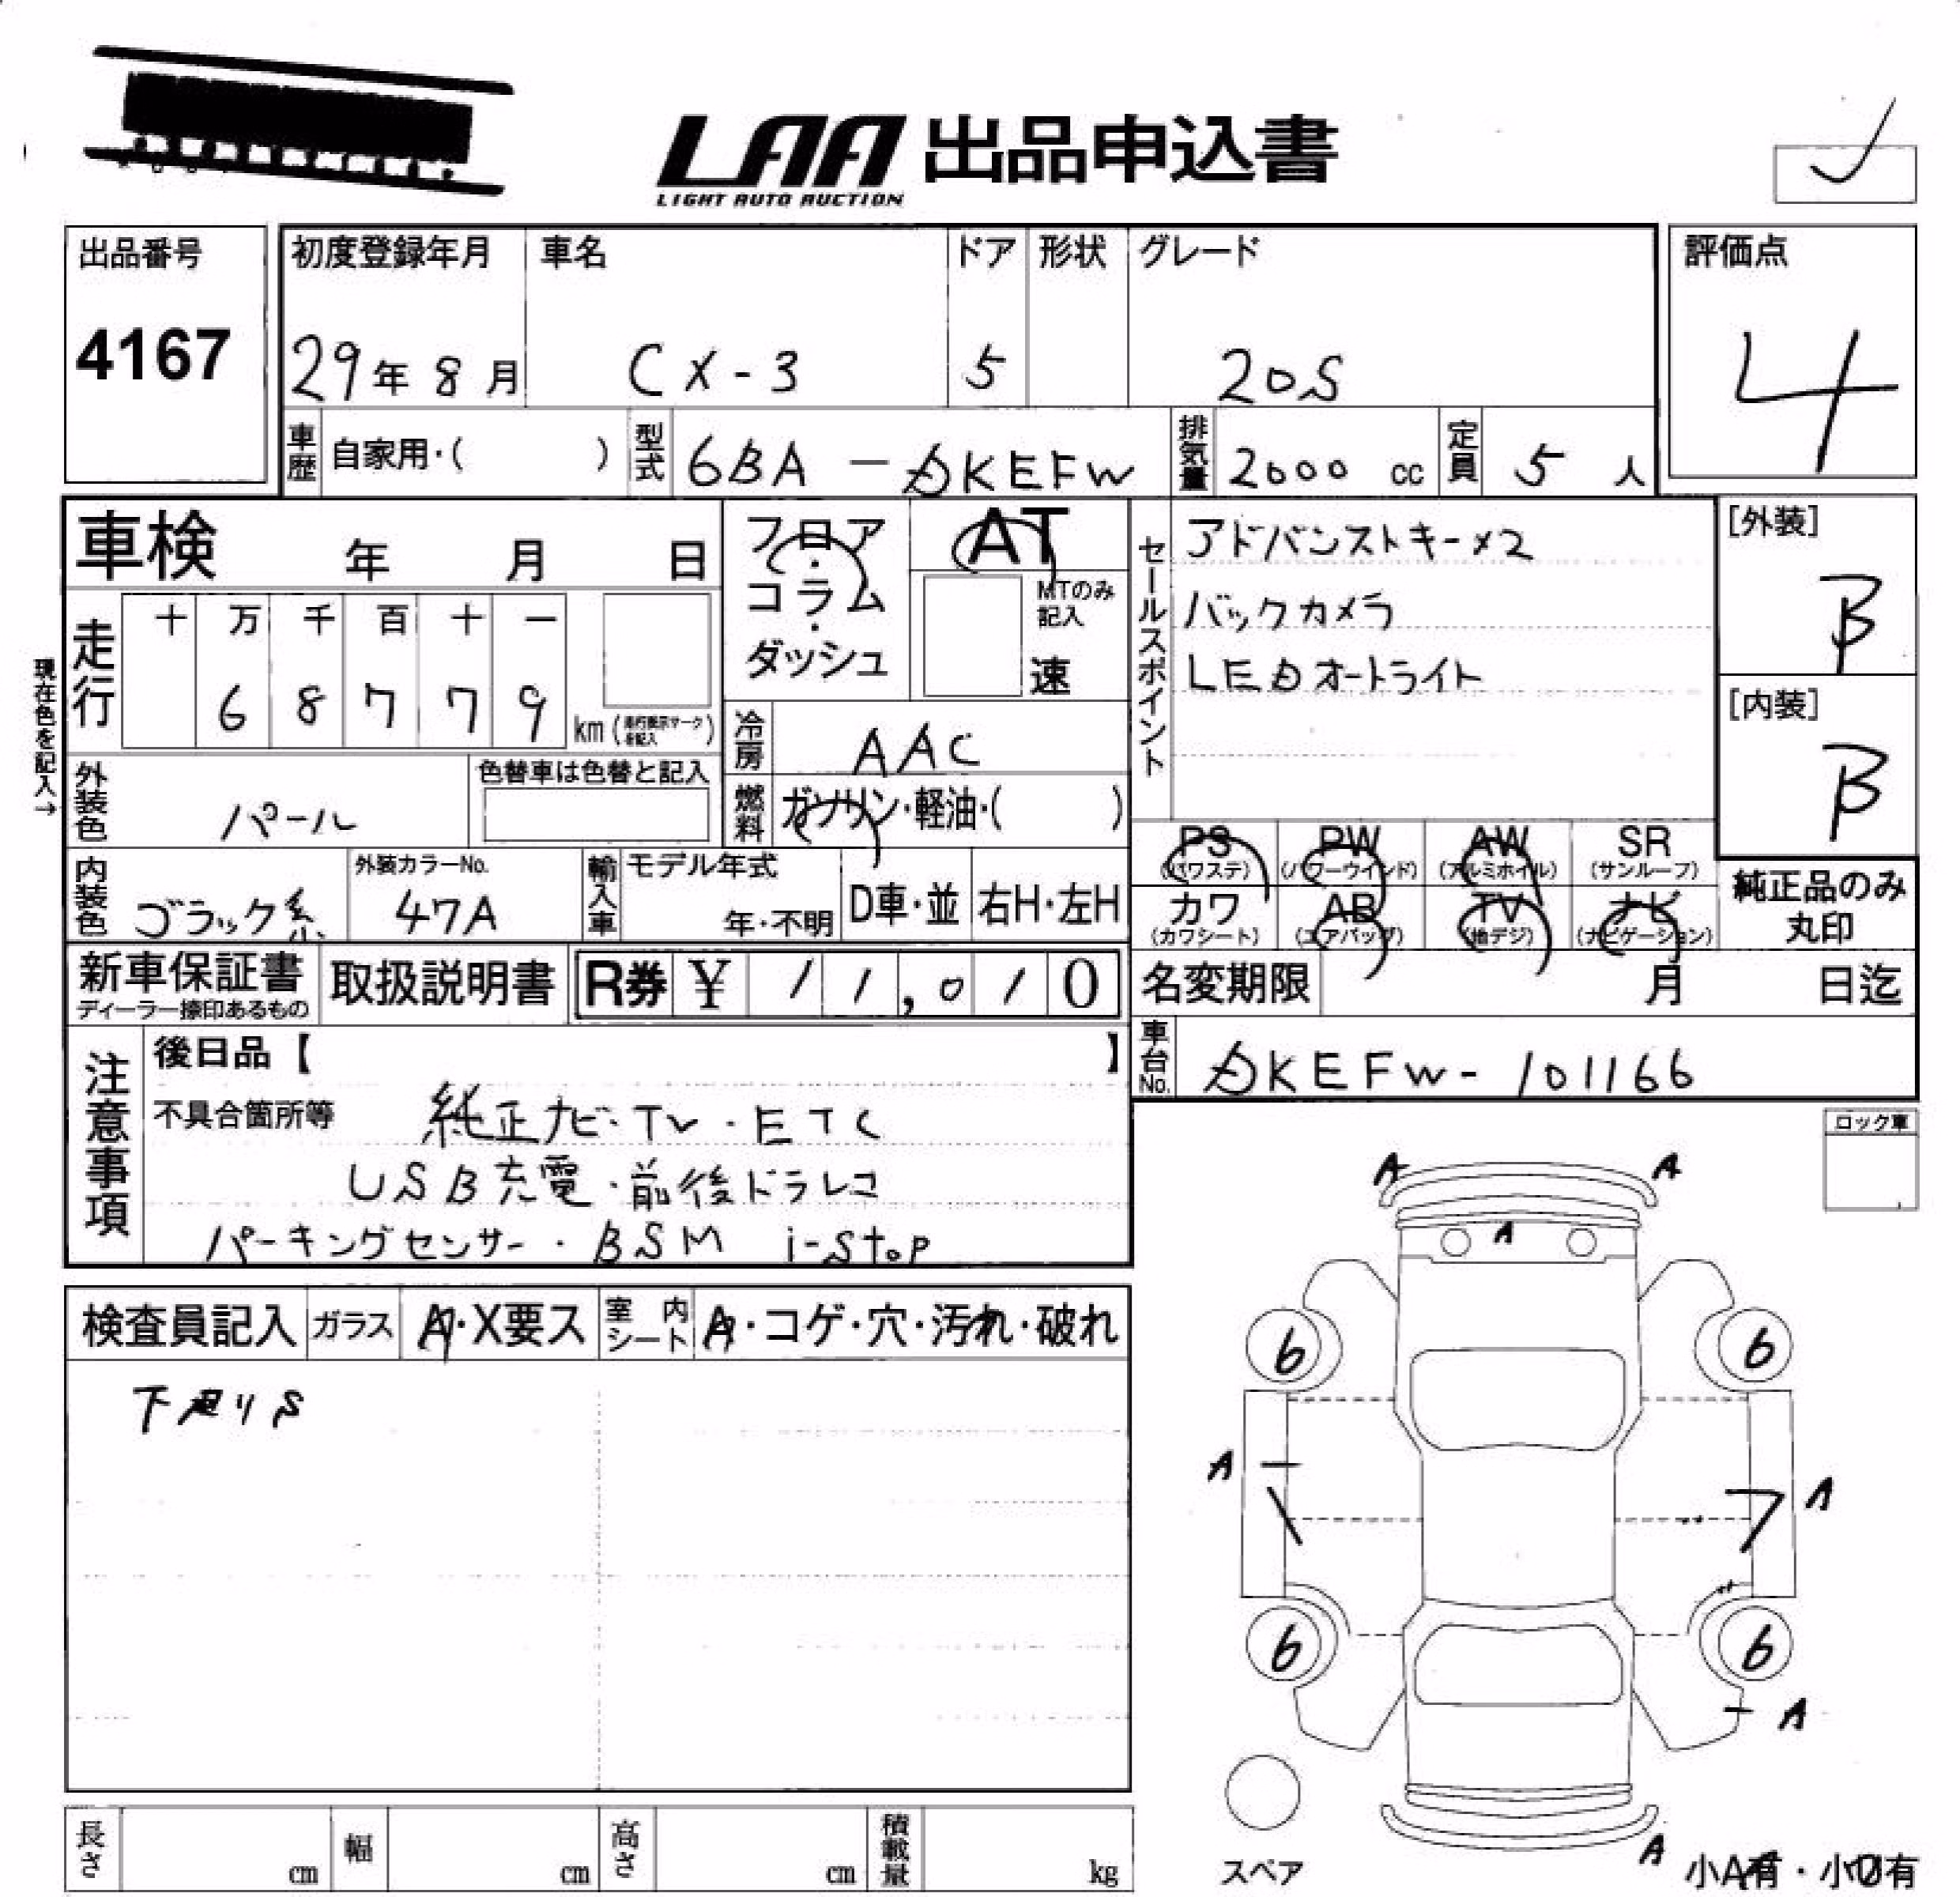 LAA 出品申込書
LIGHT AUTO AUCTION
出品番号
4167
初度登録年月
29年 8月
車名
CX-3
ドア
5
形状
グレード
20S
評価点
4
車歴 自家用・( )
型式 6BA - DKEFW
排気量 2000 cc
定員 5 人
車検 年 月 日
フロア・コラム・ダッシュ
AT
MTのみ記入
速
セールスポイント
アドバンストキー×2
バックカメラ
LEDオートライト
[外装]
B
[内装]
B
現在色を記入→
走行
十 万 千 百 十 一
6 8 7 7 9
km( )
冷房 AAC
燃料 ガソリン・軽油・( )
外装色 パール
色替車は色替と記入
内装色 ブラック系
外装カラーNo.
47A
輸入車
モデル年式
年・不明
D車・並
右H・左H
PS (パワステ)
PW (パワーウインド)
AW (アルミホイル)
SR (サンルーフ)
カワ (カワシート)
AB (エアバッグ)
TV (地デジ)
ナビ (ナビゲーション)
純正品のみ
丸印
新車保証書
ディーラー捺印あるもの
取扱説明書
R券 ¥ 11,010
名変期限 月 日迄
車台No. DKEFW-101166
注意事項
後日品【 】
不具合箇所等
純正ナビ・TV・ETC
USB充電・前後ドラレコ
パーキングセンサー・BSM i-stop
ロック車
A A
A
6 6
A
A
6 6
A
A
検査員記入
ガラス A・X要ス
室内シート A・コゲ・穴・汚れ・破れ
下廻りS
長さ cm
幅 cm
高さ cm
積載量 kg
スペア
小A有・小U有